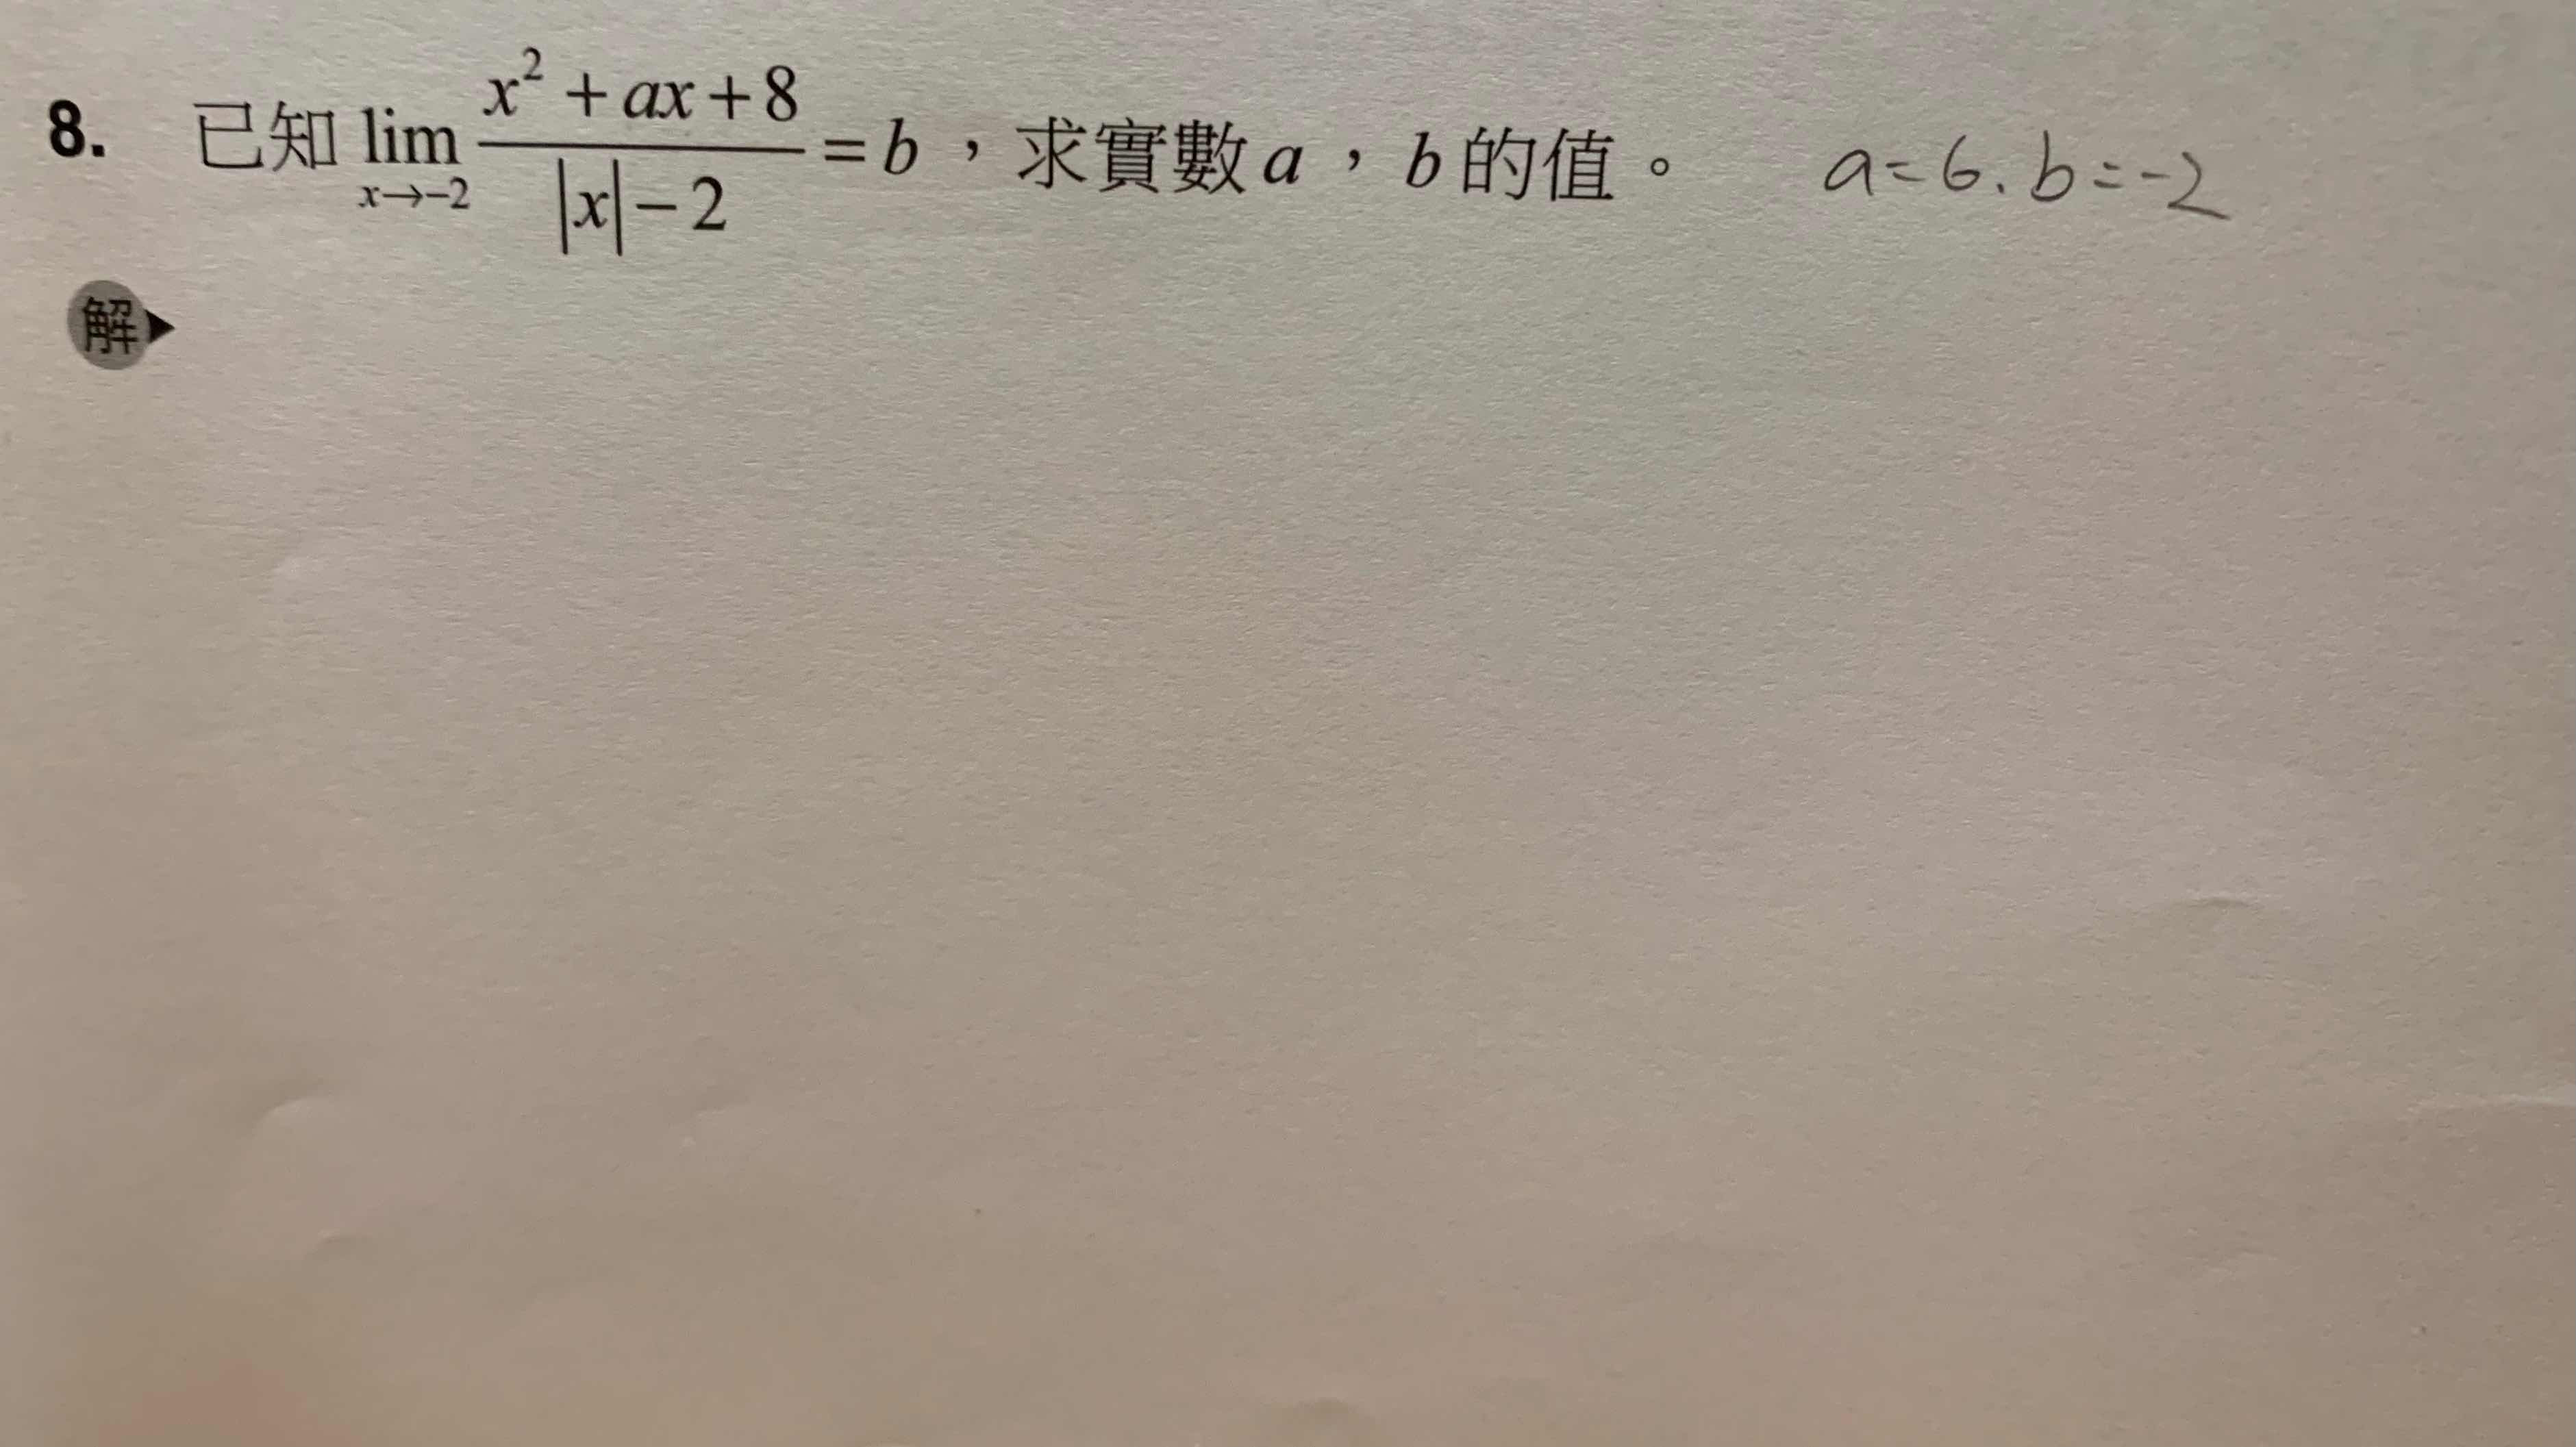 8. 已知 lim_{x→-2} \frac{x^2+ax+8}{|x|-2} = b，求實數 a，b 的值。 a=6. b=-2
解▶